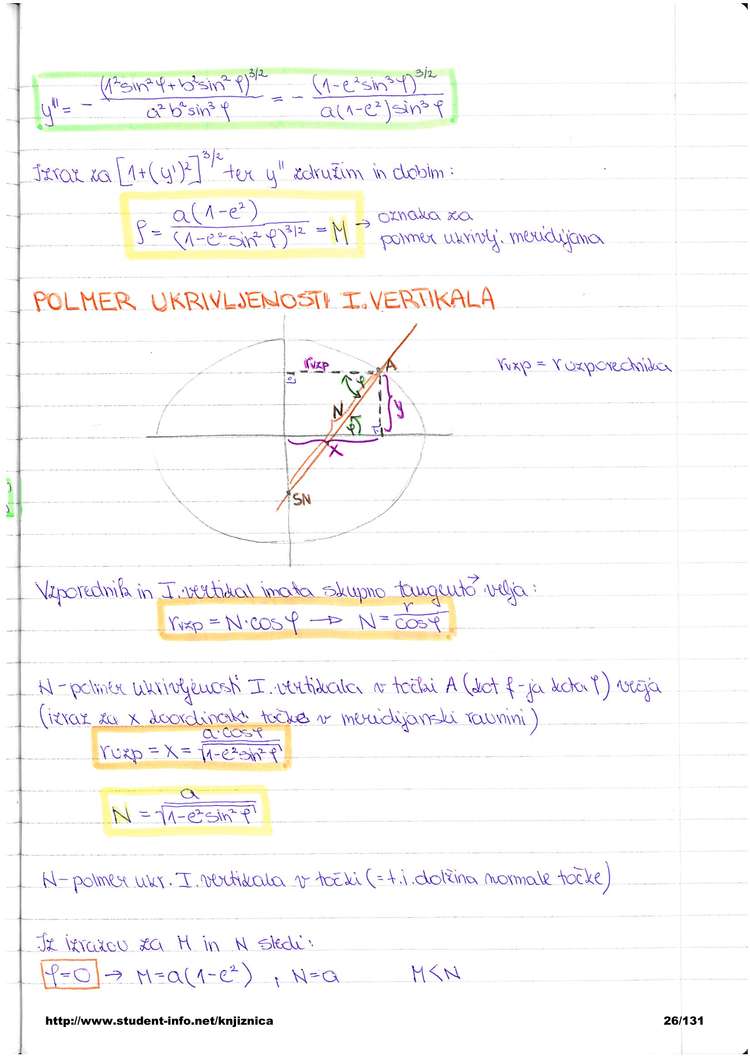 y'' = - (1²sin²φ+b²sin²φ)^3/2 / a²b²sin³φ = - (1-e²sin³φ)^3/2 / a(1-e²)sin³φ
Izraz za [1+(y')²]^3/2 ter y'' združim in dobim:
ρ = a(1-e²) / (1-e²sin²φ)^3/2 = M → oznaka za
polmer ukrivlj. meridijana
POLMER UKRIVLJENOSTI I. VERTIKALA
rvzp
A
φ
N
φ
y
x
SN
rvzp = r vzporednika
Vzporednik in I. vertikal imata skupno tangento → velja:
rvzp = N·cosφ → N = r / cosφ
N-polmer ukrivljenosti I. vertikala v točki A (kot f-ja kota φ) velja
(izraz za x koordinato točke v meridijanski ravnini)
rvzp = x = a·cosφ / √1-e²sin²φ
N = a / √1-e²sin²φ
N-polmer ukr. I. vertikala v točki (= t.i. dolžina normale točke)
Iz izrazov za M in N sledi:
φ=0 → M=a(1-e²) , N=a M<N
http://www.student-info.net/knjiznica 26/131